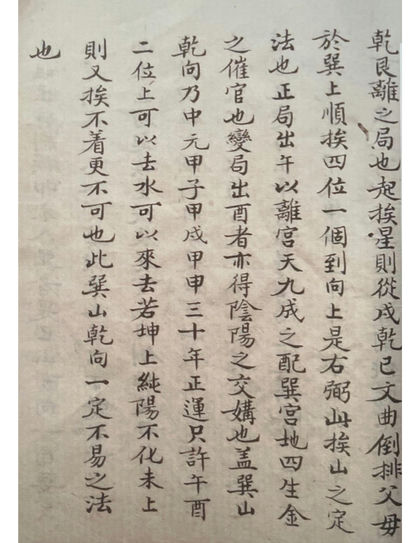 乾艮離之局也起挨星則從戌乾巳文曲倒排父母
於巽上順挨四位一個到向上是右弼此挨山之定
法也正局出午以離宮天九成之配巽宮地四生金
之催官也變局出酉者亦得陰陽之交媾也蓋巽山
乾向乃中元甲子甲戌甲申三十年正運只許午酉
二位上可以去水可以來去若坤上純陽不化未上
則又挨不着更不可也此巽山乾向一定不易之法
也